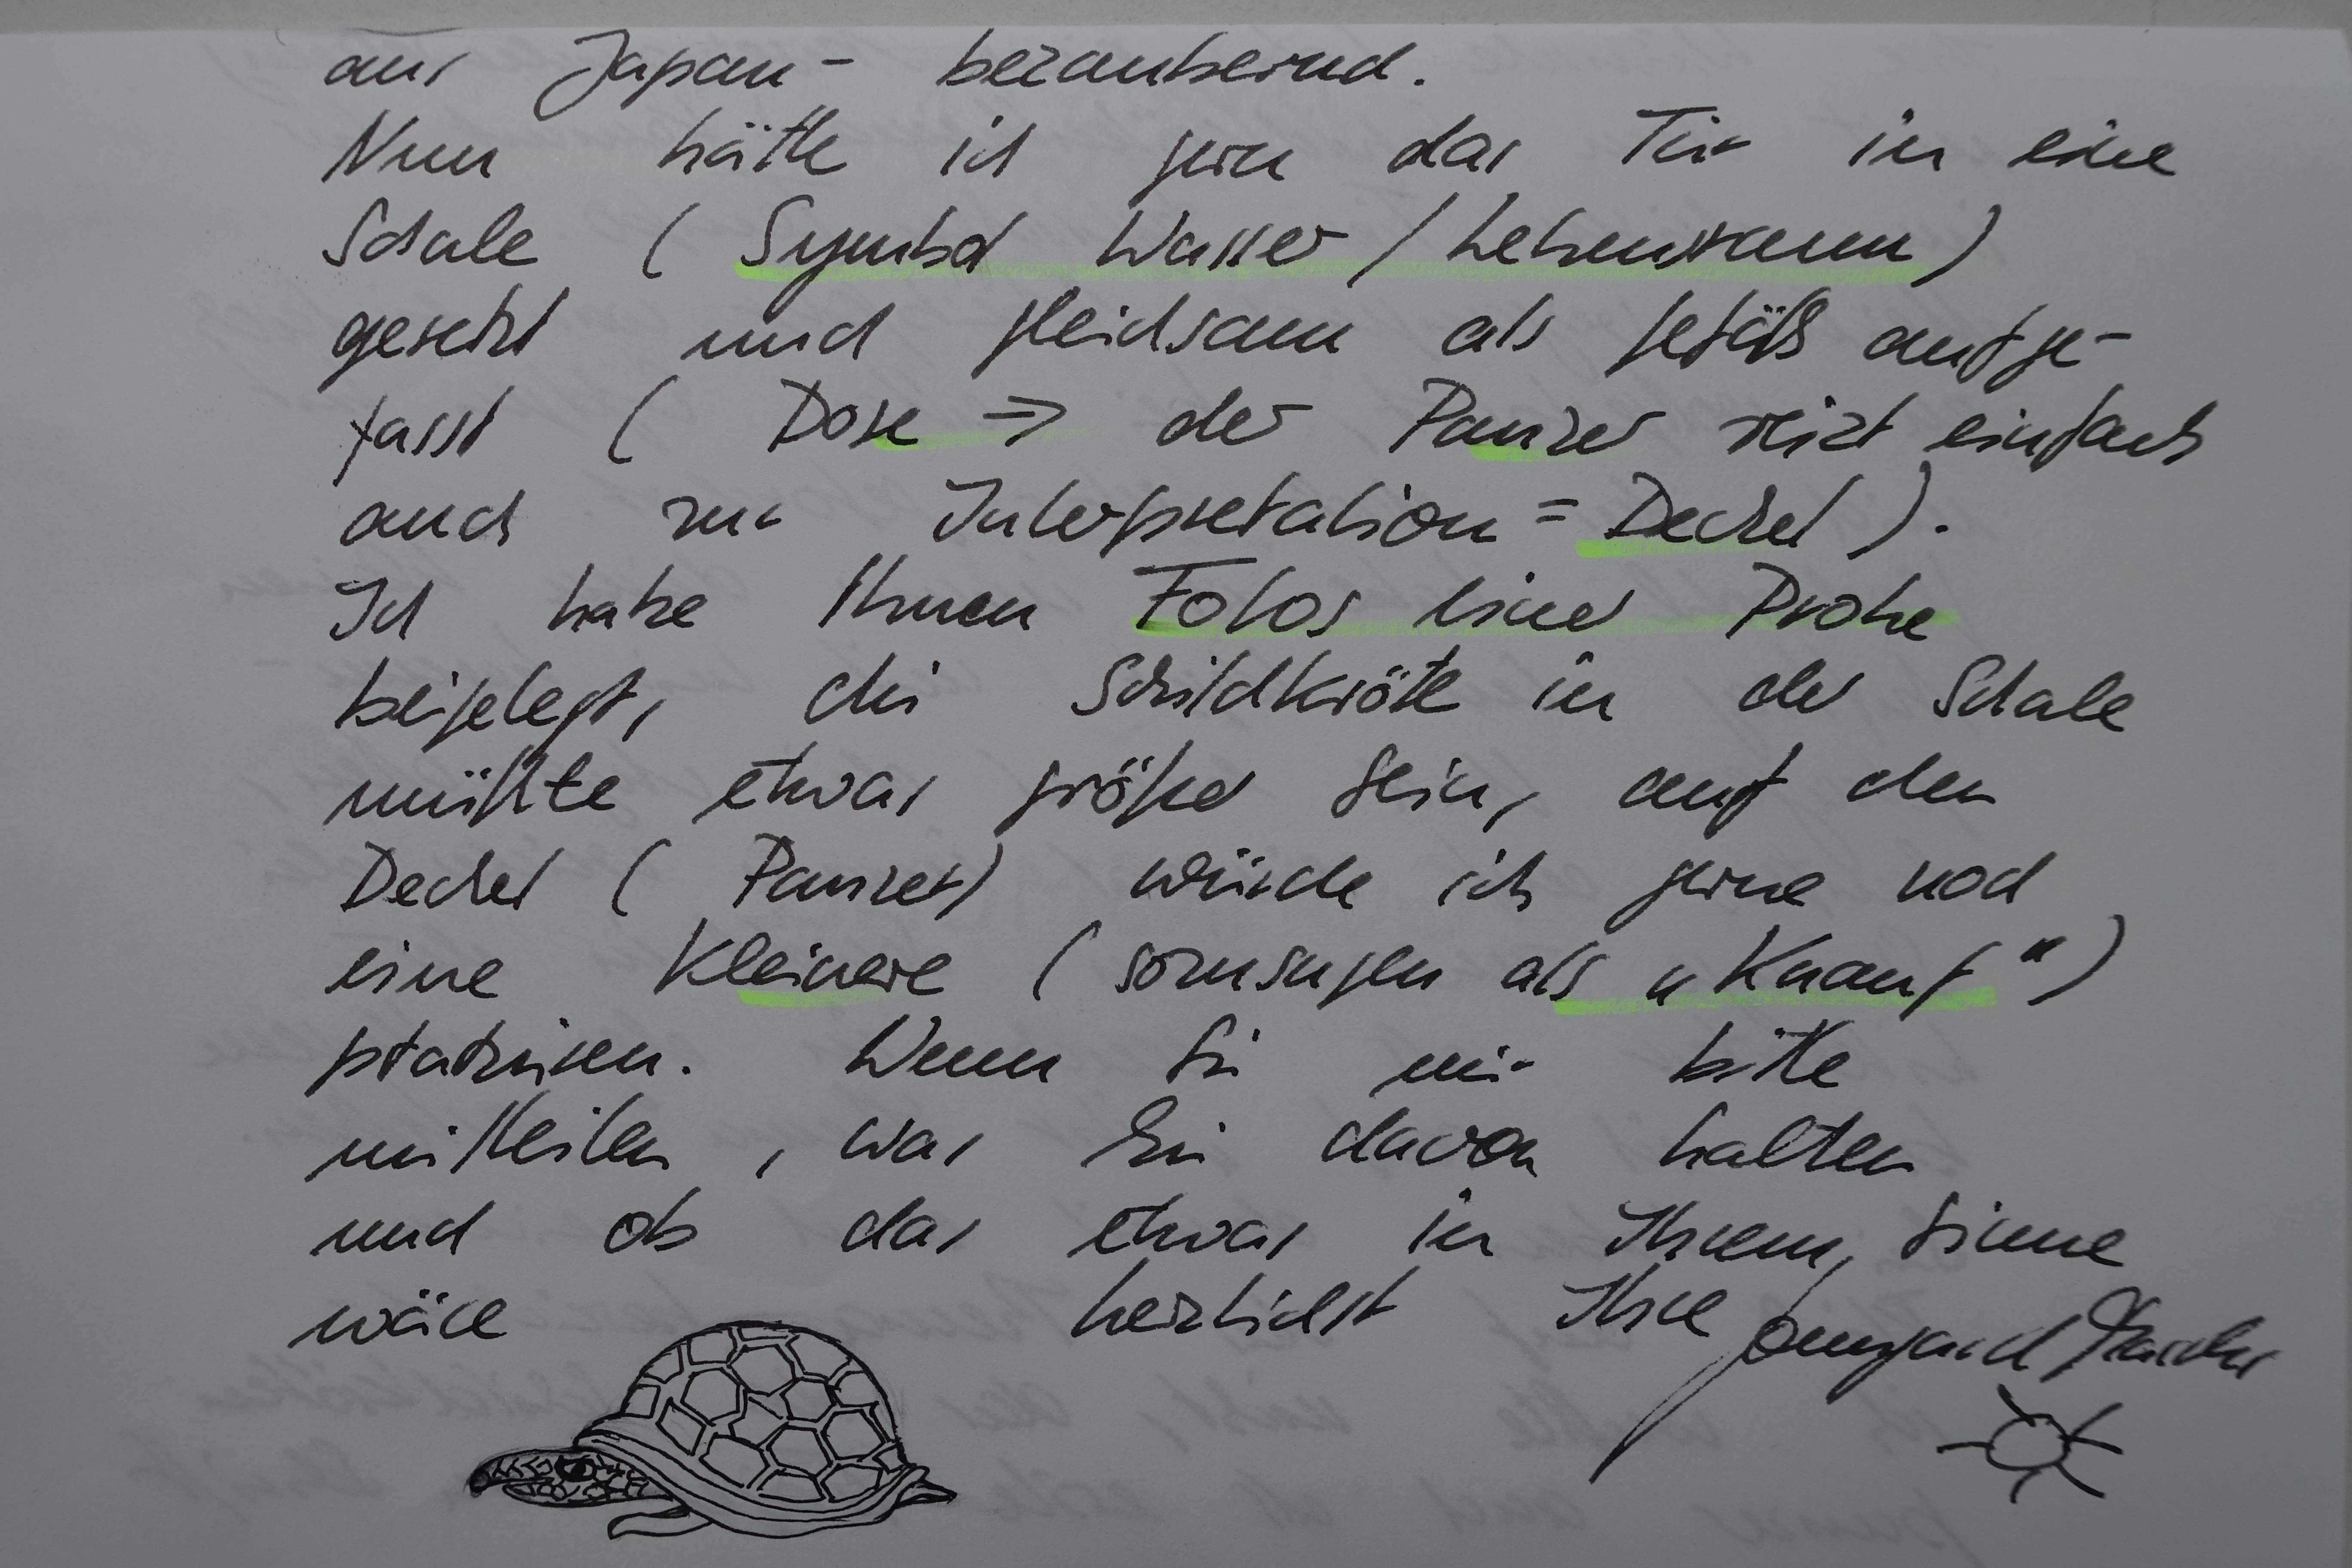 aus Japan - bezaubernd.
Nun hätte ich gern das Tier in eine
Schale (Symbol Wasser / Lebensraum)
gesetzt und gleichsam als Gefäß aufge-
fasst (Dose => der Panzer reizt einfach
auch zur Interpretation = Deckel).
Ich habe Ihnen Fotos einer Probe
beigelegt, die Schildkröte in der Schale
müßte etwas größer sein, auf den
Deckel (Panzer) würde ich gerne noch
eine Kleinere (sozusagen als „Knauf“)
platzieren. Wenn Sie mir bitte
mitteilen, was Sie davon halten
und ob das etwas in Ihrem Sinne
wäre herzlichst Ihre